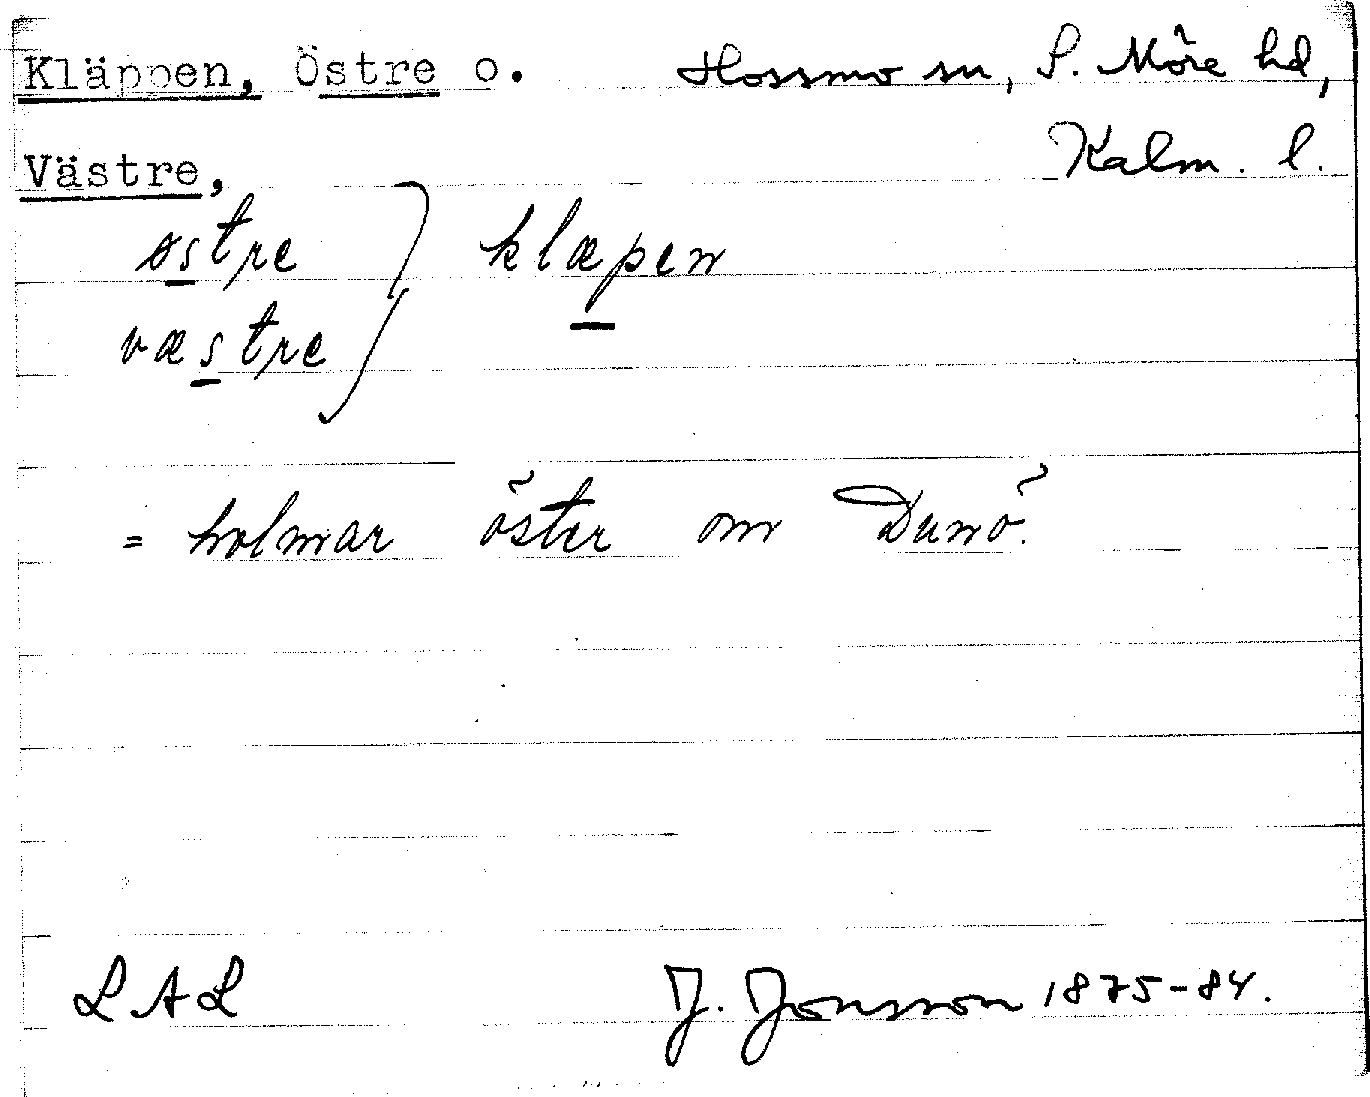 Kläppen, Östre o. Hossmo sn, S. Möre hd,
Västre, Kalm. l.
østre } klæpen
væstre
= holmar öster om Dunö.
LAL J. Jonsson 1875-84.